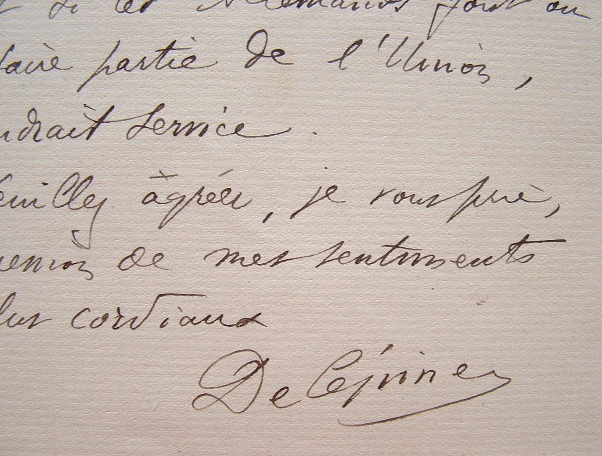 t si les Allemands font ou
faire partie de l'Union,
ndrait service.
euillez agréer, je vous prie,
ession de mes sentiments
lus cordiaux
De Lépiney